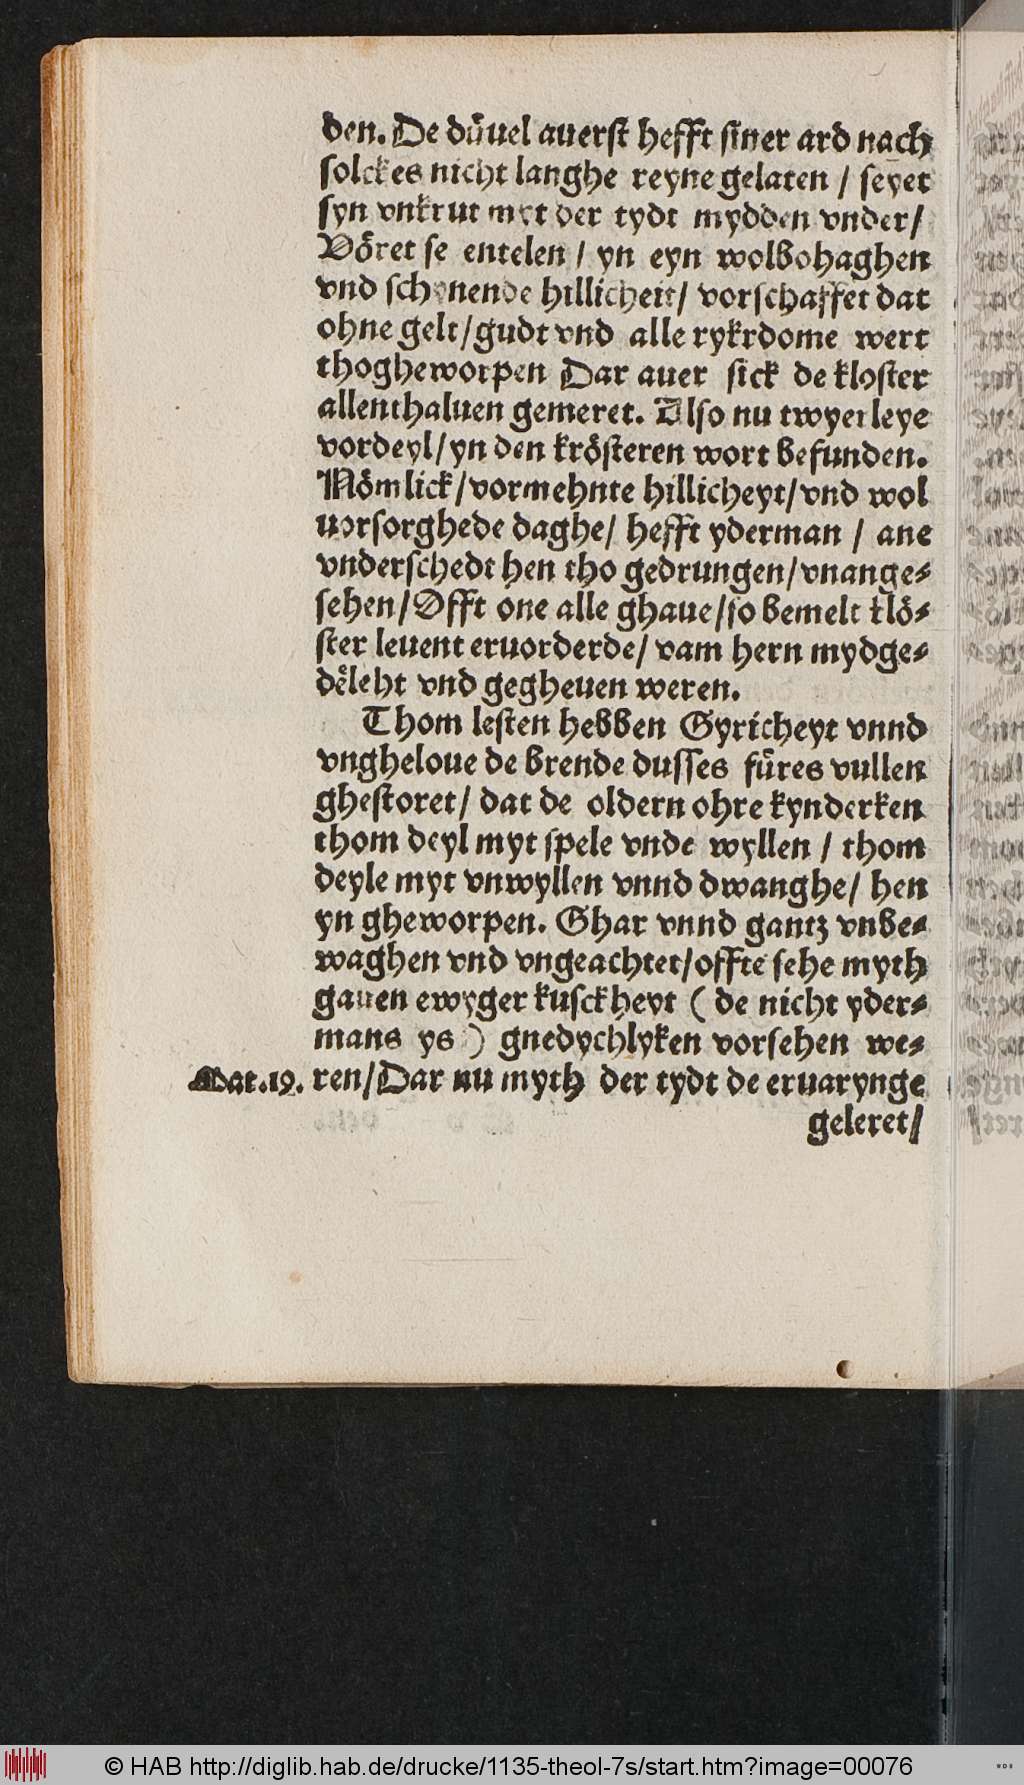 den. De düuel auerst hefft siner ard nach
solckes nicht langhe reyne gelaten / seyet
syn vnkrut myt der tydt mydden vnder /
Vöret se entelen / yn eyn wolbohaghen
vnd schynende hillicheit / vorschaffet dat
ohne gelt / gudt vnd alle rykrdome wert
thogheworpen Dar auer sick de kloster
allenthaluen gemeret. Also nu twyerleye
vordeyl / yn den krösteren wort befunden.
Nömlick / vormehnte hillicheyt / vnd wol
uorsorghede daghe / hefft yderman / ane
vnderschedt hen tho gedrungen / vnange⸗
sehen / Offt one alle ghaue / so bemelt klö⸗
ster leuent eruorderde / vam hern mydge⸗
dëleht vnd gegheuen weren.
Thom lesten hebben Gyricheyt vnnd
vngheloue de brende dusses füres vullen
ghestoret / dat de oldern ohre kynderken
thom deyl myt spele vnde wyllen / thom
deyle myt vnwyllen vnnd dwanghe / hen
yn gheworpen. Ghar vnnd gantz vnbe⸗
waghen vnd vngeachtet / offte sehe myth
gauen ewyger kusckheyt ( de nicht yder⸗
mans ys ) gnedychlyken vorsehen we⸗
Mat.19. ren / Dar nu myth der tydt de eruarynge
geleret /
© HAB http://diglib.hab.de/drucke/1135-theol-7s/start.htm?image=00076